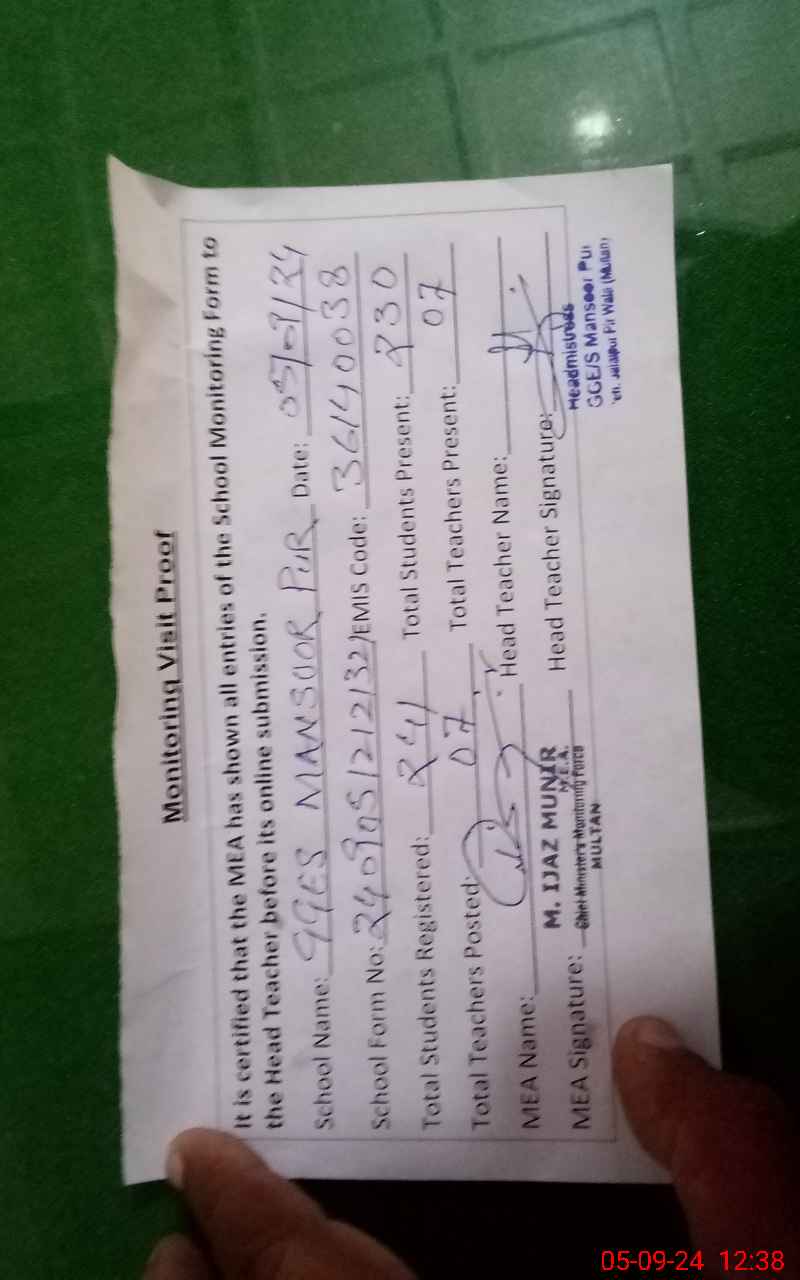 Monitoring Visit Proof
It is certified that the MEA has shown all entries of the School Monitoring Form to
the Head Teacher before its online submission.
School Name: GGES MANSOOR PUR Date: 05/09/24
School Form No: 2409051212132 EMIS Code: 36140038
Total Students Registered: 241 Total Students Present: 230
Total Teachers Posted: 07 Total Teachers Present: 07
MEA Name: Head Teacher Name:
M. IJAZ MUNIR
M.E.A.
MEA Signature: Chief Minister's Monitoring Force Head Teacher Signature:
MULTAN
Headmistress
GGE/S Mansoor Pur
Jalalpur Pir Wala (Multan)
05-09-24 12:38